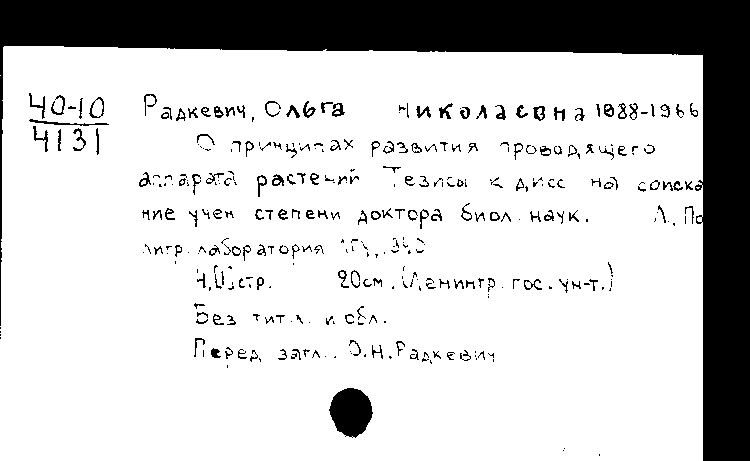 40-10
4131
Радкевич, Ольга Николаевна 1888-1966
О принципах развития проводящего
аппарата растений Тезисы к дисс на соиска
ние учен степени доктора биол. наук. Л., По
лигр. лаборатория ЛГУ,
4,[1]стр. 20см. (Ленингр. гос. ун-т.)
Без тит.л. и обл.
Перед загл.: О.Н.Радкевич